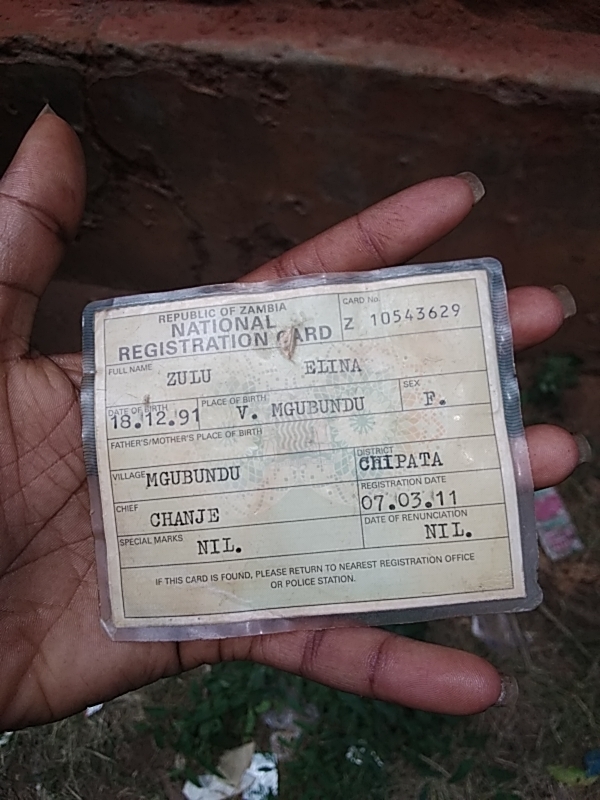 REPUBLIC OF ZAMBIA
NATIONAL
REGISTRATION CARD
CARD No.
Z 10543629
FULL NAME
ZULU ELINA
DATE OF BIRTH
18.12.91
PLACE OF BIRTH
V. MGUBUNDU
SEX
F.
FATHER'S/MOTHER'S PLACE OF BIRTH
VILLAGE MGUBUNDU
DISTRICT
CHIPATA
CHIEF
CHANJE
REGISTRATION DATE
07.03.11
SPECIAL MARKS NIL.
DATE OF RENUNCIATION
NIL.
IF THIS CARD IS FOUND, PLEASE RETURN TO NEAREST REGISTRATION OFFICE
OR POLICE STATION.